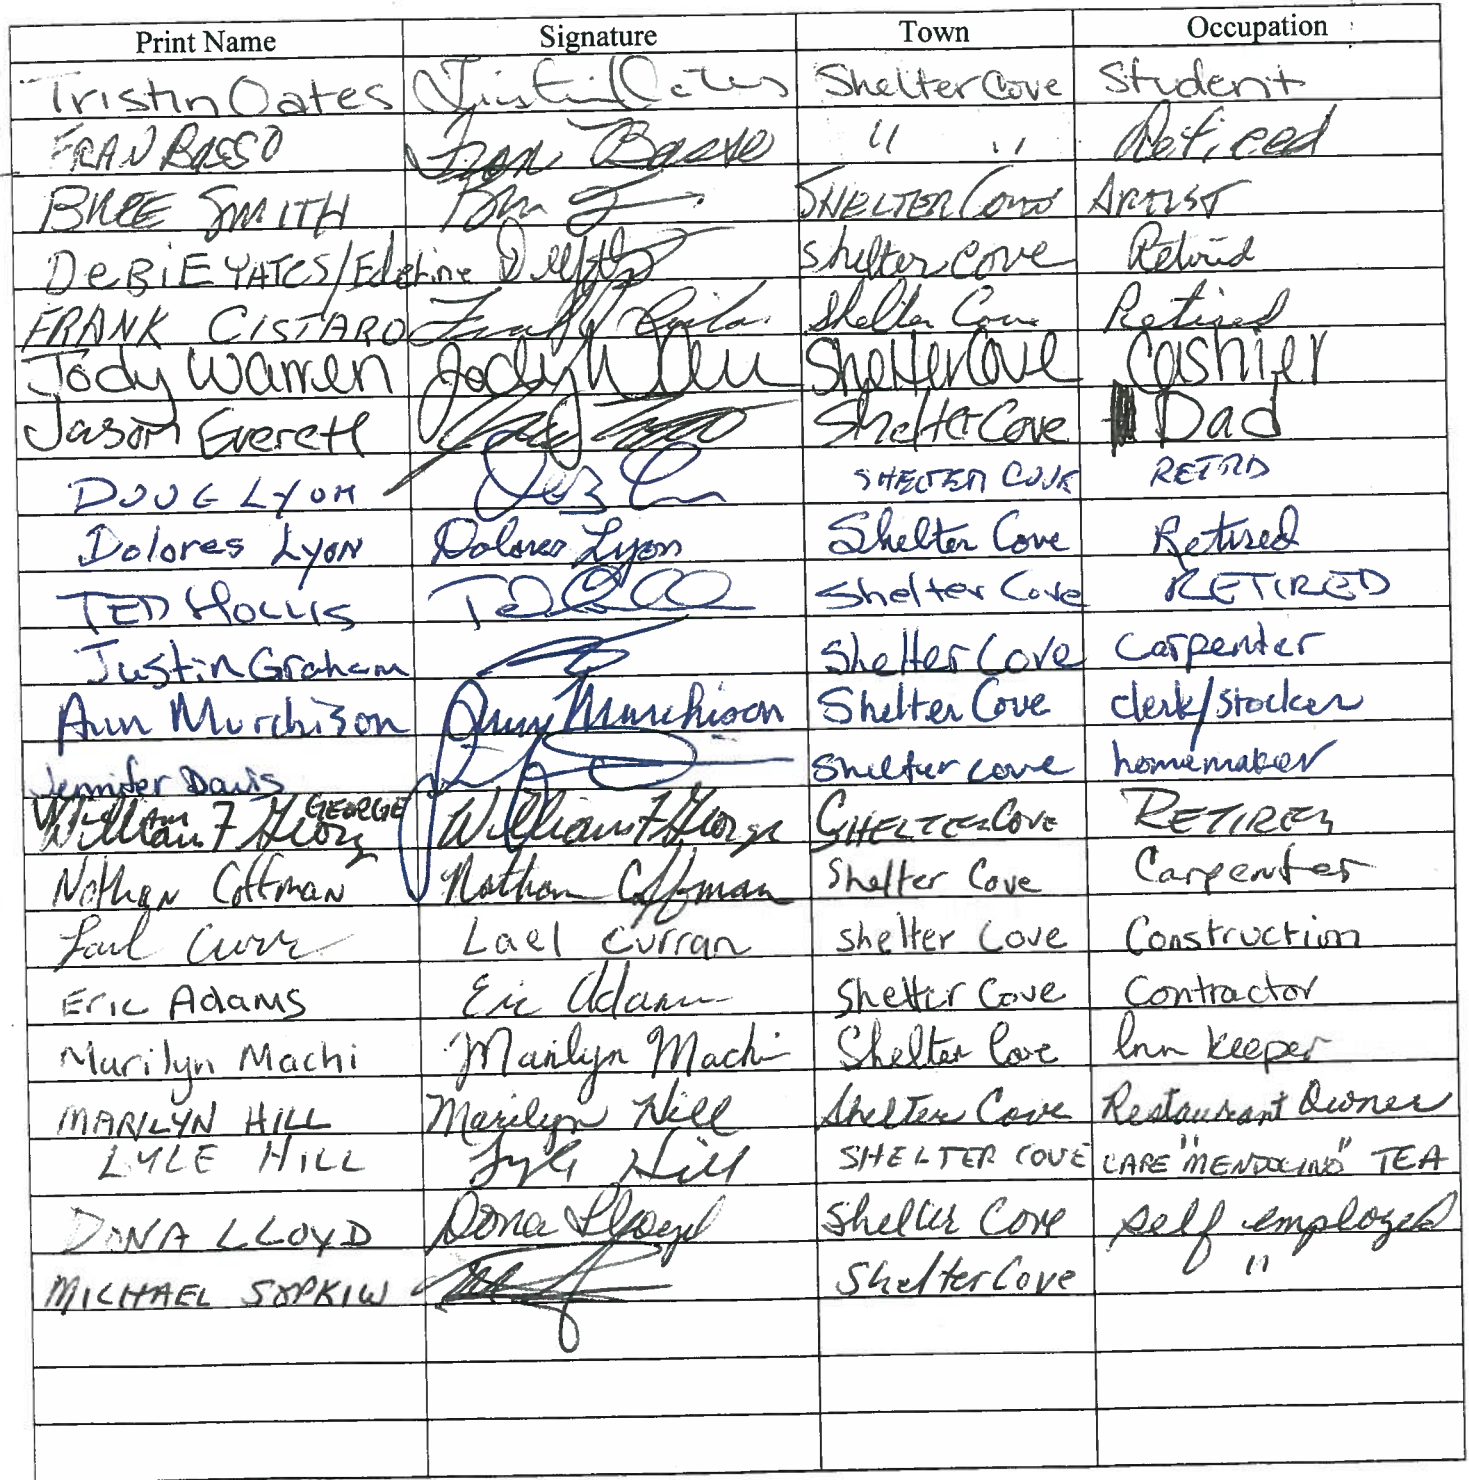 Print Name Signature Town Occupation
Tristin Oates Tristin Oates Shelter Cove Student
FRAN BASSO Fran Basso " " Retired
BREE SMITH SHELTER COVE ARTIST
DeBiE YATES/Edeline Shelter Cove Retired
FRANK CISTARO Shelter Cove Retired
Jody Warren Jody Shelter Cove Cashier
Jason Everett Shelter Cove Dad
DOUG LYON SHELTER COVE RETRD
Dolores Lyon Dolores Lyon Shelter Cove Retired
TED HOLLIS Shelter Cove RETIRED
Justin Graham Shelter Cove Carpenter
Ann Murchison Ann Murchison Shelter Cove clerk/stocker
Jennifer Davis Shelter Cove homemaker
William F George GEORGE William F George SHELTER COVE RETIRED
Nathan Coffman Nathan Coffman Shelter Cove Carpenter
Lael Curran Shelter Cove Construction
Eric Adams Eric Adams Shelter Cove Contractor
Marilyn Machi Marilyn Machi Shelter Cove Inn keeper
MARILYN HILL Marilyn Hill Shelter Cove Restaurant Owner
LYLE HILL Lyle Hill SHELTER COVE CAPE "MENDOCINO" TEA
DONA LLOYD Dona Lloyd Shelter Cove self employed
MICHAEL SOPKIW Shelter Cove "